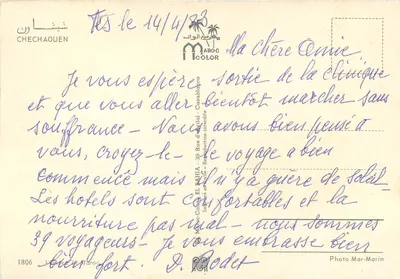 شفشاون
CHECHAOUEN
Fès le 14/4/83
MAROC
COLOR
Ma chère Amie
Je vous espère sortie de la clinique
et que vous allez bientôt marcher sans
souffrance - Nous avons bien pensé à
vous, croyez-le - le voyage a bien
commencé mais il n'y a guère de soleil -
Les hotels sont confortables et la
nourriture pas mal - nous sommes
39 voyageurs - Je vous embrasse bien
bien fort.
1806
Photo Mar-Marin